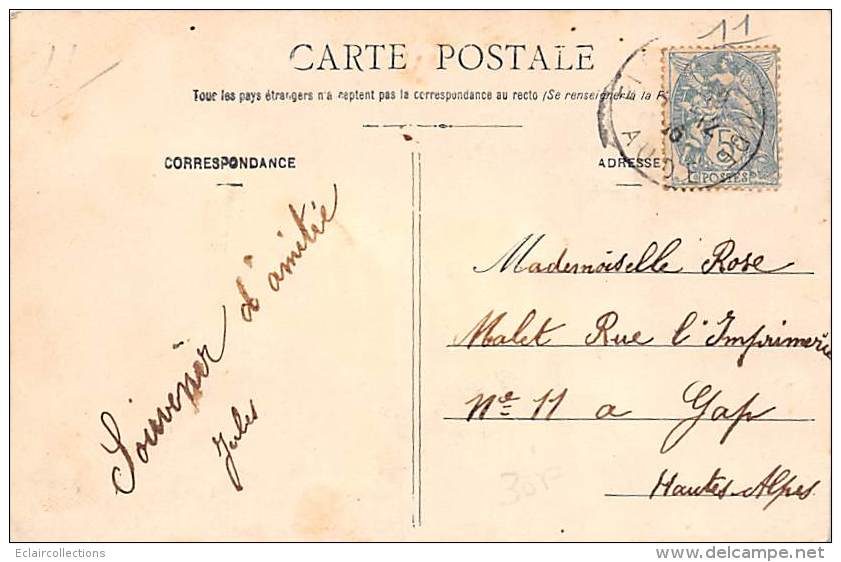 11
11
CARTE POSTALE
Tous les pays étrangers n'acceptent pas la correspondance au recto (Se renseigner à la
CORRESPONDANCE
ADRESSE
5
POSTES
AUDE
Souvenir d'amitié
Jules
Mademoiselle Rose
Malet Rue l'Imprimerie
Ne 11 a Gap
Hautes-Alpes
30F
Eclaircollections
delcampe.net